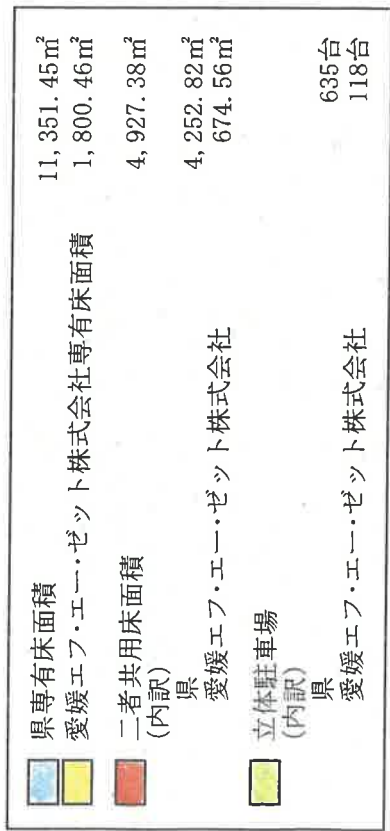 県専有床面積 11,351.45㎡
愛媛エフ・エー・ゼット株式会社専有床面積 1,800.46㎡
二者共用床面積 4,927.38㎡
(内訳)
県 4,252.82㎡
愛媛エフ・エー・ゼット株式会社 674.56㎡
立体駐車場
(内訳)
県 635台
愛媛エフ・エー・ゼット株式会社 118台